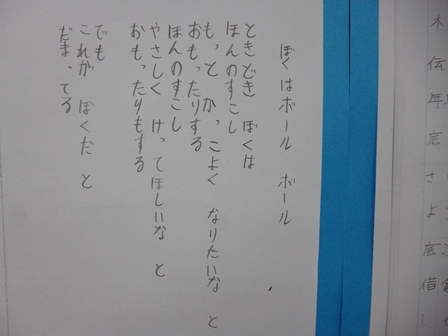 ぼくはボール　ボール
ときどき　ぼくは
ほんのすこし
もっと　かっこよく　なりたいな　と
おもったりする
ほんのすこし
やさしく　けってほしいな　と
おもったりもする
でも
これが　ぼくだ　と
だまってる
木
伝
年
底
さ
よ
底
借